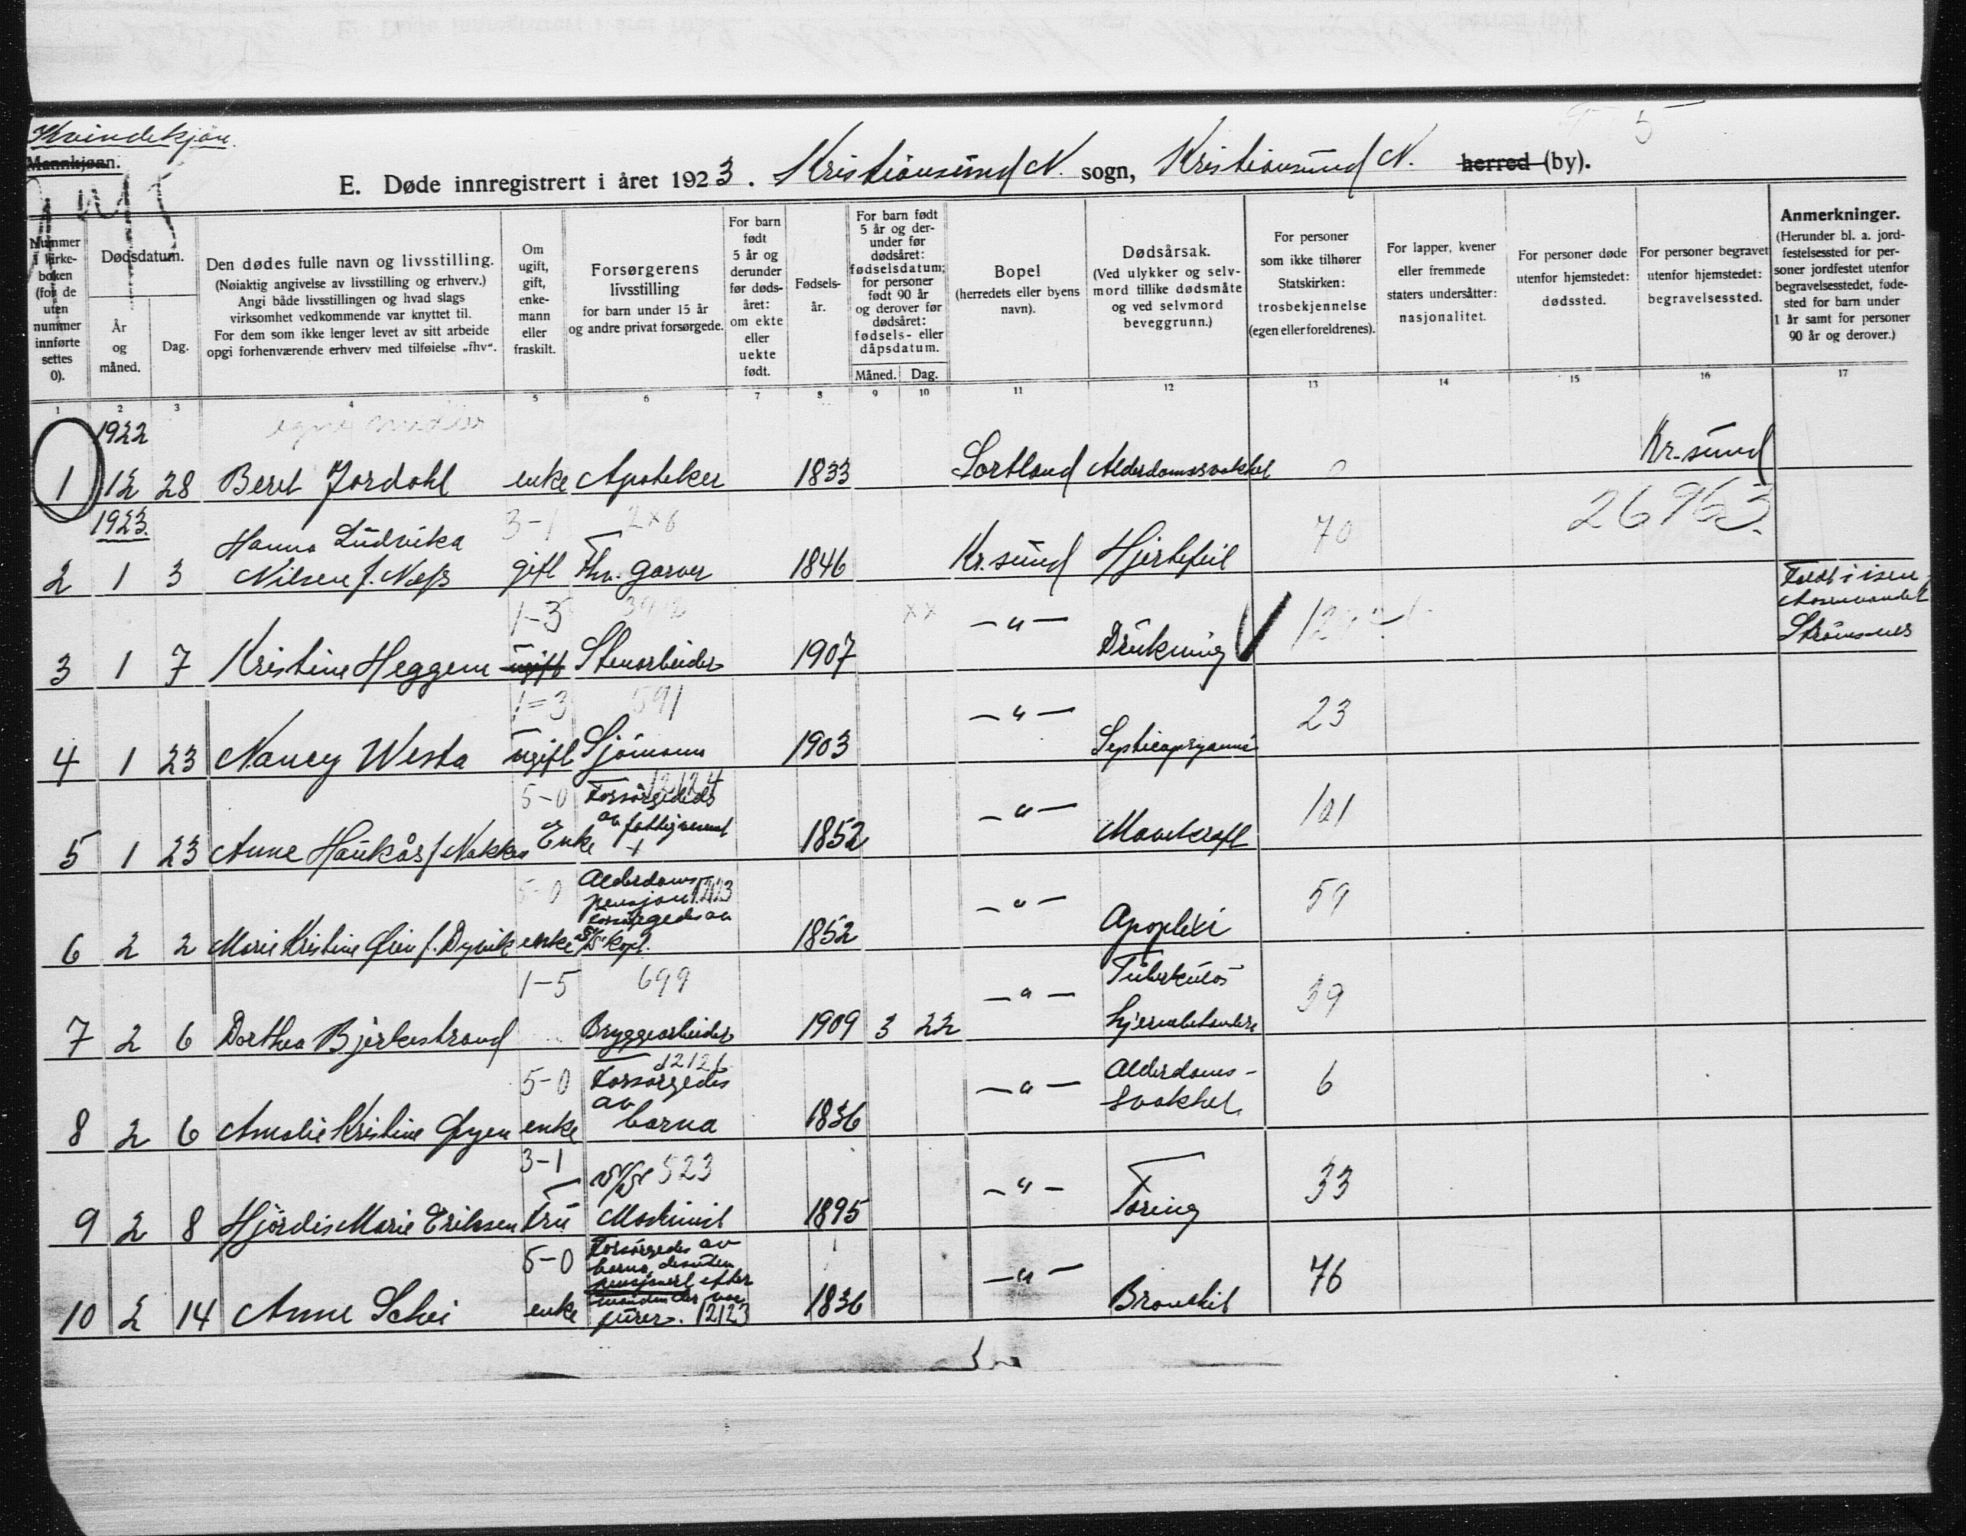 Kvindekjøn.
Mannkjønn.
E. Døde innregistrert i året 1923. Kristiansund N. sogn, Kristiansund N. herred (by).
5
Nummer i kirke-boken (for de uten nummer innførte settes 0).
Dødsdatum.
År og måned.
Dag.
Den dødes fulle navn og livsstilling.
(Nøiaktig angivelse av livsstilling og erhverv.)
Angi både livsstillingen og hvad slags
virksomhet vedkommende var knyttet til.
For dem som ikke lenger levet av sitt arbeide
opgi forhenværende erhverv med tilføielse „fhv“.
Om ugift, gift, enke-mann eller fraskilt.
Forsørgerens livsstilling
for barn under 15 år
og andre privat forsørgede.
For barn født 5 år og derunder før døds-året: om ekte eller uekte født.
Fødsels-år.
For barn født 5 år og der-under før dødsåret: fødselsdatum; for personer født 90 år og derover før dødsåret: fødsels- eller dåpsdatum.
Måned. Dag.
Bopel
(herredets eller byens navn).
Dødsårsak.
(Ved ulykker og selv-mord tillike dødsmåte og ved selvmord beveggrunn.)
For personer som ikke tilhører Statskirken: trosbekjennelse (egen eller foreldrenes).
For lapper, kvener eller fremmede staters undersåtter: nasjonalitet.
For personer døde utenfor hjemstedet: dødssted.
For personer begravet utenfor hjemstedet: begravelsessted.
Anmerkninger.
(Herunder bl. a. jord-festelsessted for per-soner jordfestet utenfor begravelsesstedet, føde-sted for barn under 1 år samt for personer 90 år og derover.)
1 2 3 4 5 6 7 8 9 10 11 12 13 14 15 16 17
1922
1 12 28 Beret Jordahl enke Apoteker 1833 Sortland Alderdomssvakhet 0 Kr.sund
1923. 3-1 2×6 70 26963.
Hanna Ludvika
2 1 3 Nilsen f. Næss gift Fhv. garver 1846 Kr.sund Hjertefeil
1-3 xx Faldt i isen,
3 1 7 Kristine Heggem ugift Stenarbeider 1907 -"- Drukning Strømsnes
1=3 591
4 1 23 Nancy Westa ugift Sjømann 1903 -"- 23
5-0 12124 Forsørgedes
av fattigvesenet
5 1 23 Anne Haukås f. Nakken Enke 1852 -"- Mavekraft 101
5-0 Alderdoms-
pensjon 12123
forsørgedes av
6 2 2 Marie Kristine Øien f. Dyrvik enke 1852 -"- Apoplexi 59
1-5 699 Tuberkuløs
7 2 6 Dorthea Bjerkestrand Bryggearbeider 1909 3 22 -"- hjernebetændelse 39
5-0 12126 Alderdoms-
Forsørgedes
av
8 2 6 Amalie Kristine Øyen enke barna 1836 -"- svakhet 6
3-1 523
9 2 8 Hjørdis Marie Eriksen Fru Maskinist 1895 -"- Tæring 33
5-0 Forsørgedes av
barna, desuten
pensjonert efter
manden der var
10 2 14 Anne Schei enke 12123 1836 -"- Bronchit 76